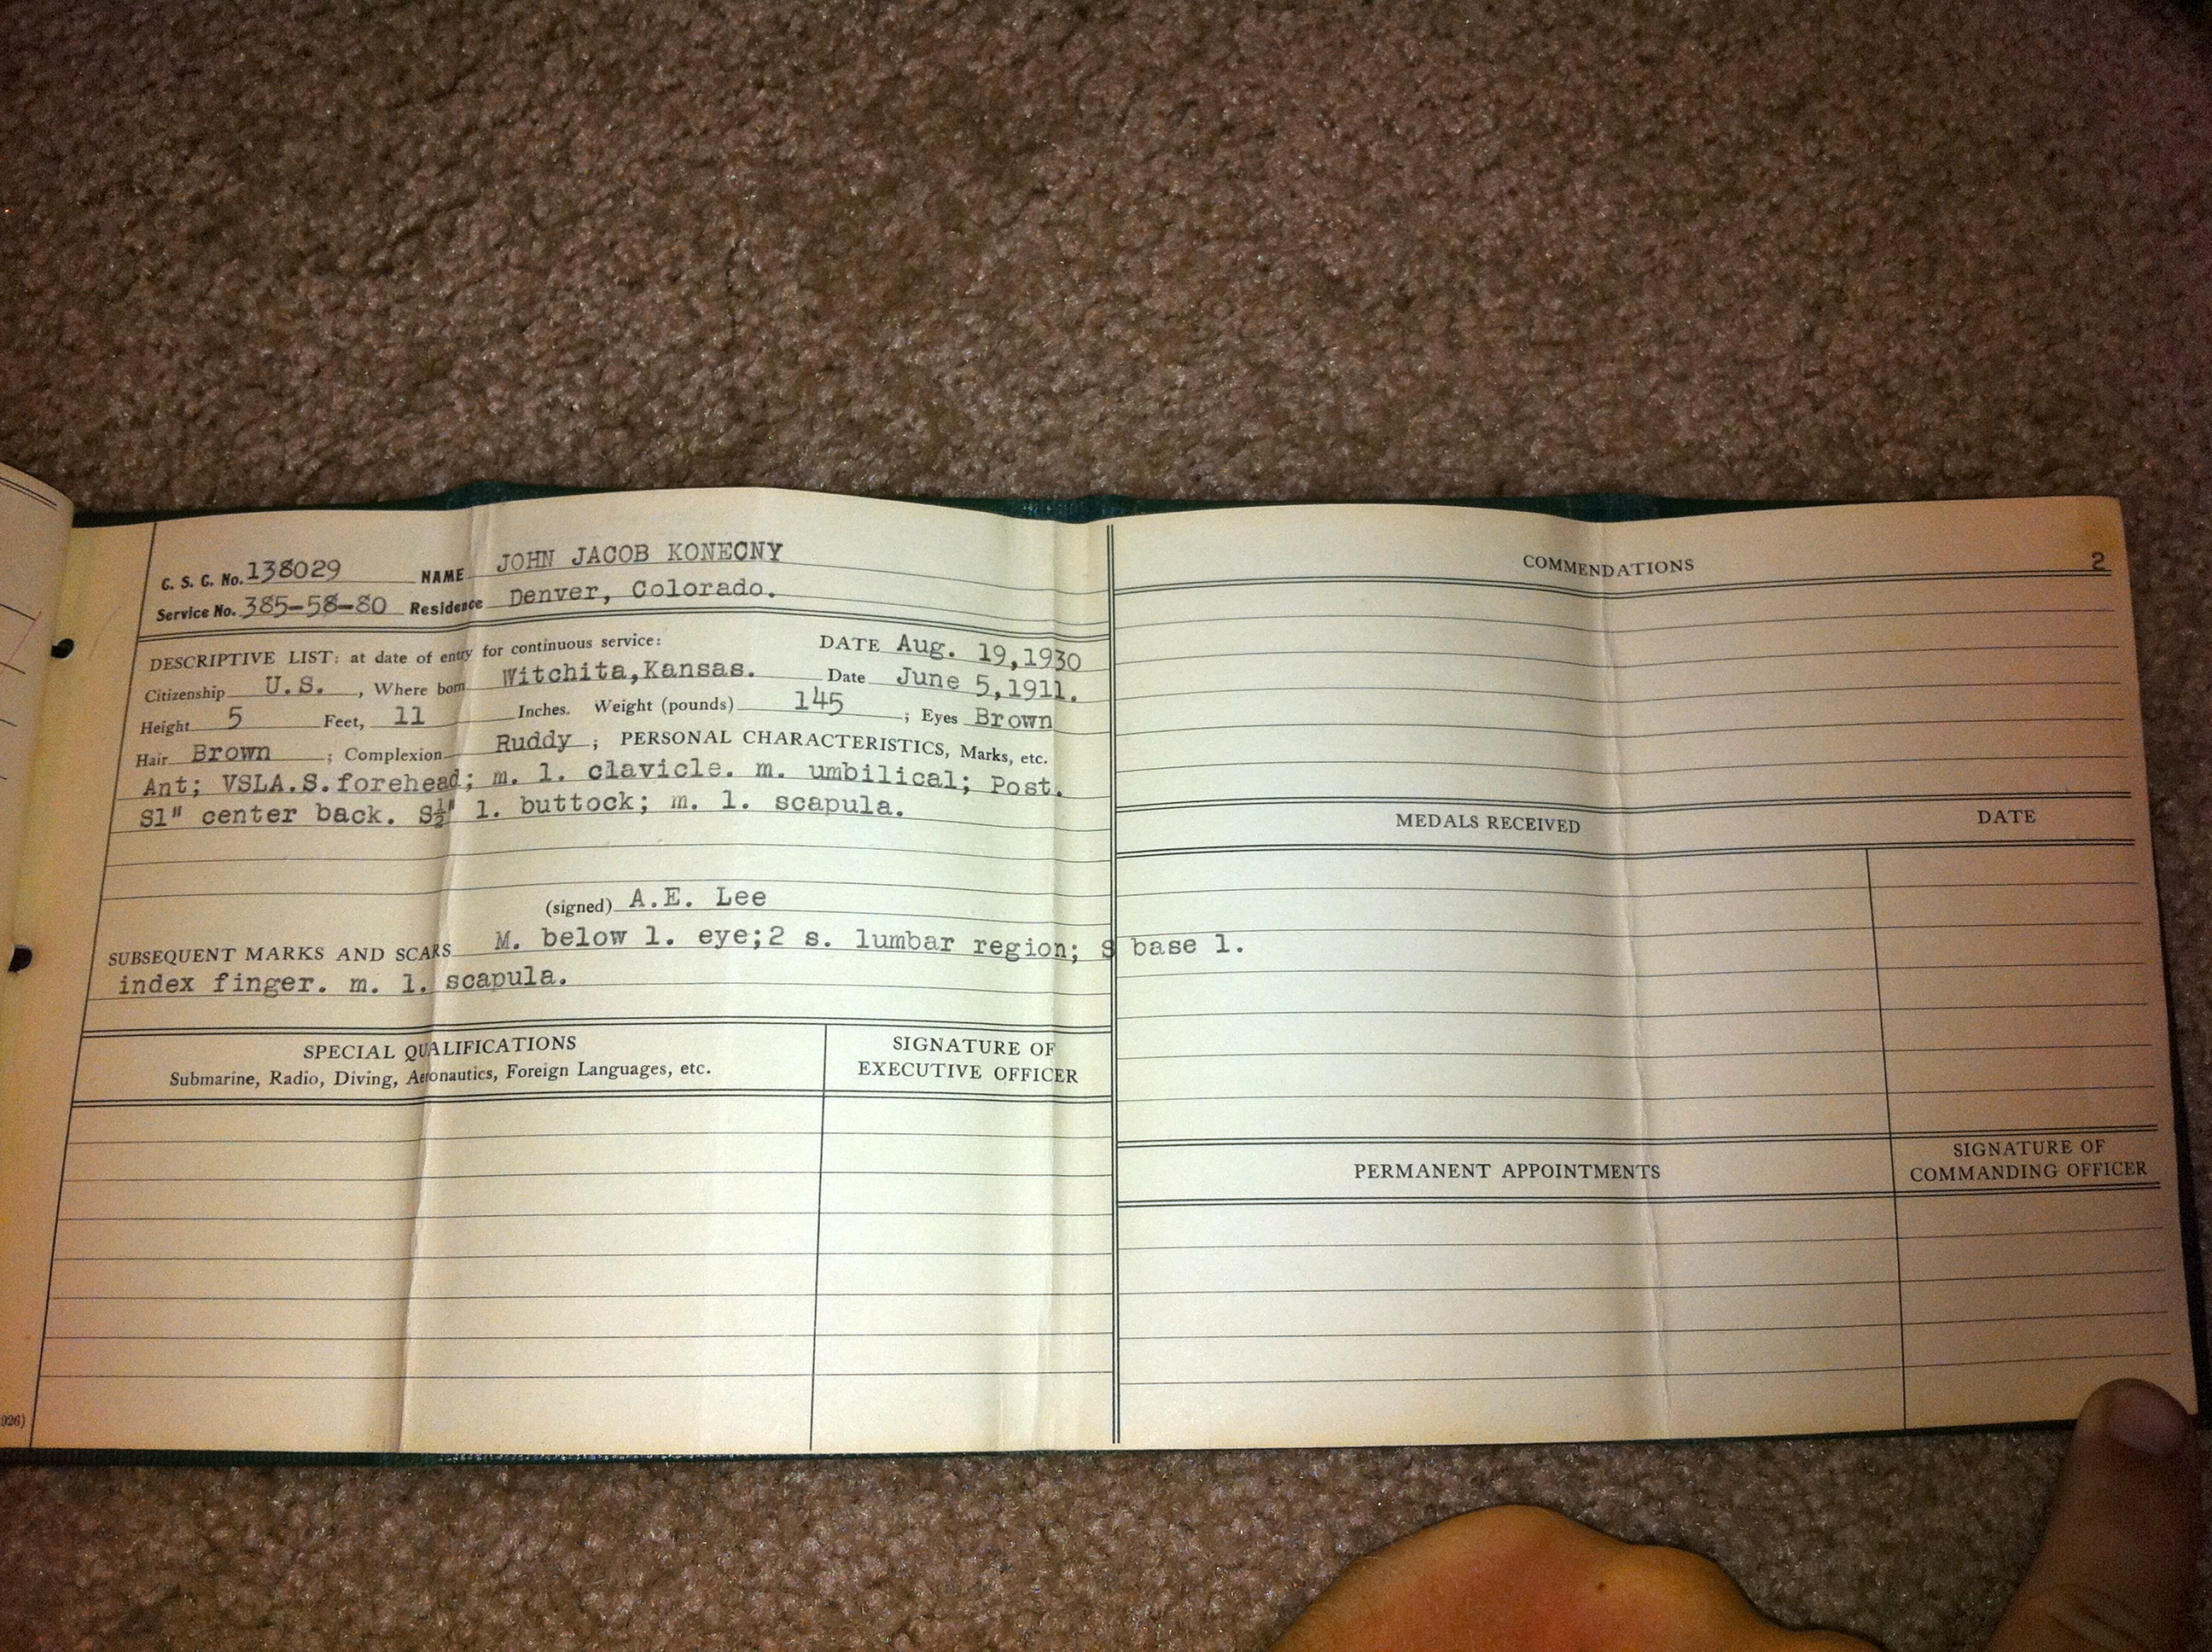 C. S. C. No. 138029 NAME JOHN JACOB KONECNY
Service No. 385-58-80 Residence Denver, Colorado.
DESCRIPTIVE LIST: at date of entry for continuous service: DATE Aug. 19,1930
Citizenship U.S. , Where born Witchita,Kansas. Date June 5,1911.
Height 5 Feet, 11 Inches. Weight (pounds) 145 ; Eyes Brown
Hair Brown ; Complexion Ruddy ; PERSONAL CHARACTERISTICS, Marks, etc.
Ant; VSLA.S.forehead; m. l. clavicle. m. umbilical; Post.
S1" center back. S½" l. buttock; m. l. scapula.
(signed) A.E. Lee
SUBSEQUENT MARKS AND SCARS M. below l. eye;2 s. lumbar region; S base l.
index finger. m. l. scapula.
SPECIAL QUALIFICATIONS
Submarine, Radio, Diving, Aeronautics, Foreign Languages, etc.
SIGNATURE OF
EXECUTIVE OFFICER
926)
COMMENDATIONS
2
MEDALS RECEIVED DATE
PERMANENT APPOINTMENTS
SIGNATURE OF
COMMANDING OFFICER